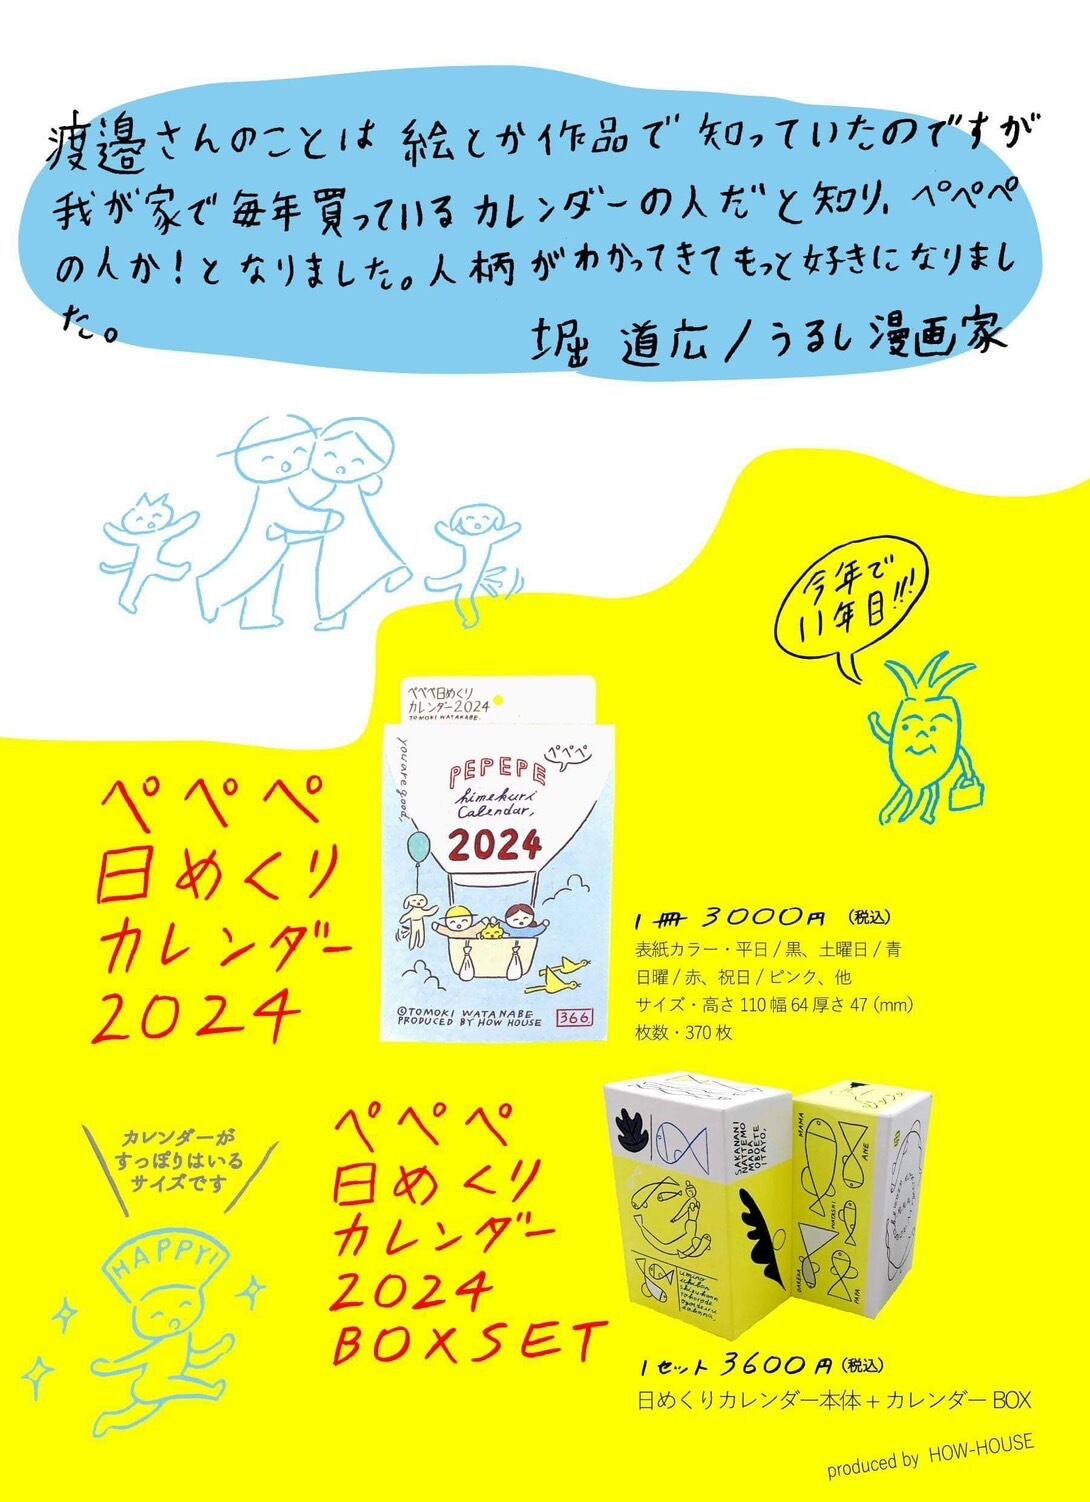 渡邉さんのことは 絵とか作品で 知っていたのですが
我が家で毎年買っているカレンダーの人だと知り、ペペペ
の人か!となりました。人柄がわかってきてもっと好きになりまし
た。
堀 道広/うるし漫画家
今年で
11年目!!!
ペペペ日めくり
カレンダー2024
TOMOKI WATANABE.
you are good,
ペペペ
PEPEPE
himekuri
Calendar,
2024
©TOMOKI WATANABE
PRODUCED BY HOW HOUSE
366
ペペペ
日めくり
カレンダー
2024
1冊 3000円 (税込)
表紙カラー・平日/黒、土曜日/青
日曜/赤、祝日/ピンク、他
サイズ・高さ110幅64厚さ47(mm)
枚数・370枚
カレンダーが
すっぽりはいる
サイズです
HAPPY!
ペペペ
日めくり
カレンダー
2024
BOXSET
SAKANANI
NATTEMO
MADA
OBOETE
ITAYO,
umino
ichiban
shizukana
tokorode
MAMA
ANE
MATASHI
PAPA
1セット 3600円(税込)
日めくりカレンダー本体+カレンダーBOX
produced by HOW-HOUSE